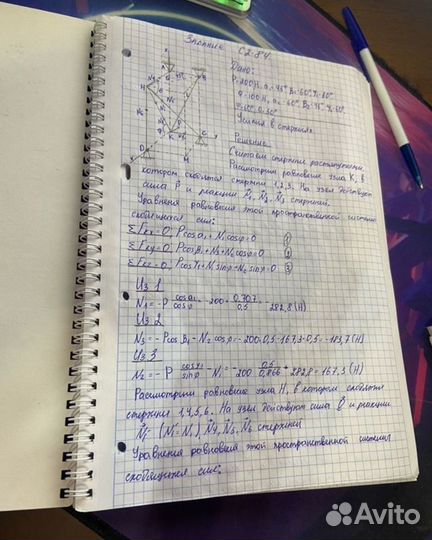 Задание С2-84
Дано:
P=200H, α₁=45°, β₁=60°, γ₁=60°
Q=100H, α₂=60°, β₂=45°, γ₂=60°
φ=60°
Усилия в стержнях
Решение
Считаем стержни растянутыми
Рассмотрим равновесие узла K, в
котором сходятся стержни 1,2,3. На узел действуют
сила P и реакции N₁, N₂, N₃ стержней.
Уравнения равновесия этой пространственной системы
сходящихся сил:
ΣFkx=0; Pcosα₁+N₁cosφ=0 1
ΣFky=0; Pcosβ₁+N₃+N₂cosφ=0 2
ΣFkz=0; Pcosγ₁+N₁sinφ+N₂sinφ=0 3
Из 1
N₁=-P cosα₁/cosφ = -200·0,707/0,5 = -282,8(H)
Из 2
N₃=-Pcosβ₁-N₂cosφ=-200·0,5-167,3·0,5=-183,7(H)
Из 3
N₂=-P cosγ₁/sinφ - N₁=-200 0,5/0,866+282,8=167,3(H)
Рассмотрим равновесие узла H, в котором сходятся
стержни 1,4,5,6. На узел действуют сила Q и реакции
N₁' (N₁'=N₁), N₄, N₅, N₆ стержней
Уравнения равновесия этой пространственной системы
сходящихся сил:
Avito